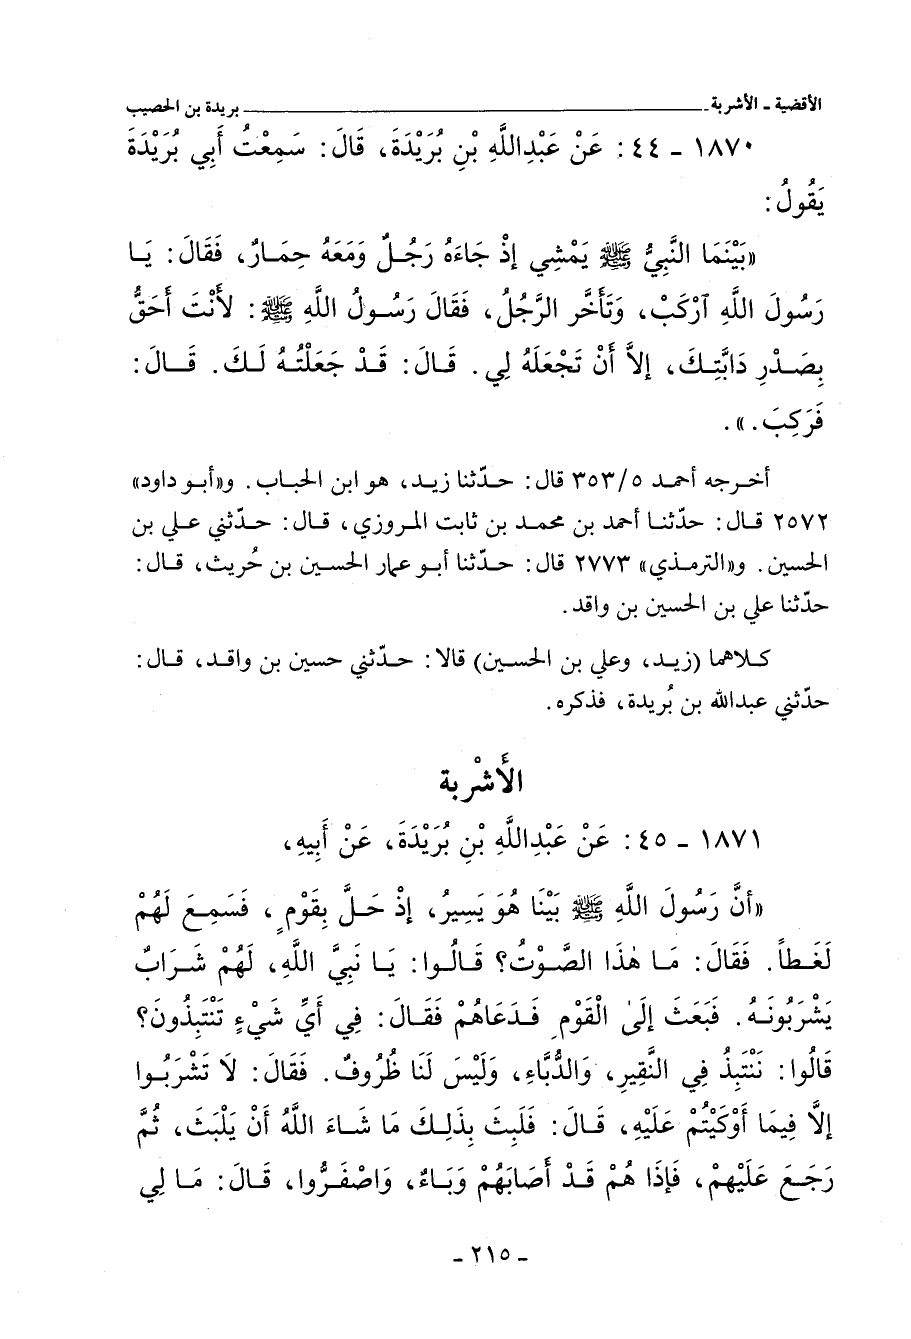 الأقضية - الأشربة ـــــــــ بريدة بن الحصيب
١٨٧٠ - ٤٤ : عَنْ عَبْدِاللَّهِ بْنِ بُرَيْدَةَ، قَالَ: سَمِعْتُ أَبِي بُرَيْدَةَ
يَقُولُ:
«بَيْنَمَا النَّبِيُّ ﷺ يَمْشِي إِذْ جَاءَهُ رَجُلٌ وَمَعَهُ حِمَارٌ، فَقَالَ: يَا
رَسُولَ اللَّهِ ٱرْكَبْ، وَتَأَخَّر الرَّجُلُ، فَقَالَ رَسُولُ اللَّهِ ﷺ: لأَنْتَ أَحَقُّ
بِصَدْرِ دَابَّتِكَ، إِلاَّ أَنْ تَجْعَلَهُ لِي. قَالَ: قَدْ جَعَلْتُهُ لَكَ. قَالَ:
فَرَكِبَ.».
أخرجه أحمد ٣٥٣/٥ قال: حدّثنا زيد، هو ابن الحباب. و«أبو داود»
٢٥٧٢ قال: حدّثنا أحمد بن محمد بن ثابت المروزي، قال: حدّثني علي بن
الحسين. و«الترمذي» ٢٧٧٣ قال: حدّثنا أبو عمار الحسين بن حُريث، قال:
حدّثنا علي بن الحسين بن واقد.
كلاهما (زيد، وعلي بن الحسين) قالا: حدّثني حسين بن واقد، قال:
حدّثني عبدالله بن بُريدة، فذكره.
الأَشْرِبة
١٨٧١ - ٤٥ : عَنْ عَبْدِاللَّهِ بْنِ بُرَيْدَةَ، عَنْ أَبِيهِ،
«أَنَّ رَسُولَ اللَّهِ ﷺ بَيْنَا هُوَ يَسِيرُ، إِذْ حَلَّ بِقَوْمٍ، فَسَمِعَ لَهُمْ
لَغَطاً. فَقَالَ: مَا هٰذَا الصَّوْتُ؟ قَالُوا: يَا نَبِيَّ اللَّهِ، لَهُمْ شَرَابٌ
يَشْرَبُونَهُ. فَبَعَثَ إِلَىٰ الْقَوْمِ فَدَعَاهُمْ فَقَالَ: فِي أَيِّ شَيْءٍ تَنْتَبِذُونَ؟
قَالُوا: نَنْتَبِذُ فِي النَّقِيرِ، وَالدُّبَّاءِ، وَلَيْسَ لَنَا ظُرُوفٌ. فَقَالَ: لاَ تَشْرَبُوا
إِلاَّ فِيمَا أَوْكَيْتُمْ عَلَيْهِ، قَالَ: فَلَبِثَ بِذَلِكَ مَا شَاءَ اللَّهُ أَنْ يَلْبَثَ، ثُمَّ
رَجَعَ عَلَيْهِمْ، فَإِذَا هُمْ قَدْ أَصَابَهُمْ وَبَاءٌ، وَاصْفَرُّوا، قَالَ: مَا لِي
- ٢١٥ -